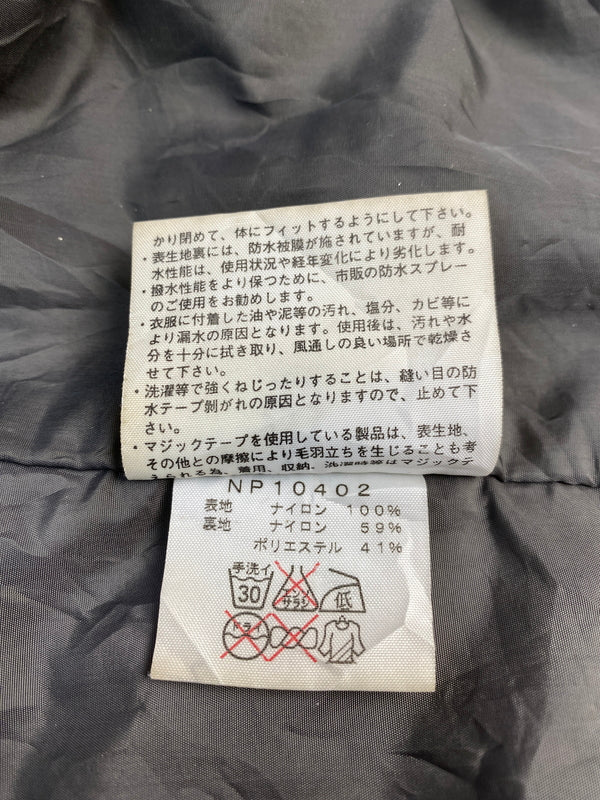 かり閉めて、体にフィットするようにして下さい。
・表生地裏には、防水被膜が施されていますが、耐
水性能は、使用状況や経年変化により劣化します。
・撥水性能をより保つために、市販の防水スプレー
のご使用をお勧めします。
・衣服に付着した油や泥等の汚れ、塩分、カビ等に
より漏水の原因となります。使用後は、汚れや水
分を十分に拭き取り、風通しの良い場所で乾燥さ
せて下さい。
・洗濯等で強くねじったりすることは、縫い目の防
水テープ剝がれの原因となりますので、止めて下
さい。
・マジックテープを使用している製品は、表生地、
その他との摩擦により毛羽立ちを生じることも考
えられる為、着用、収納、洗濯時等はマジックテ
NP10402
表地 ナイロン 100%
裏地 ナイロン 59%
ポリエステル 41%
手洗イ
30
エンソ
サラシ
低
ドライ